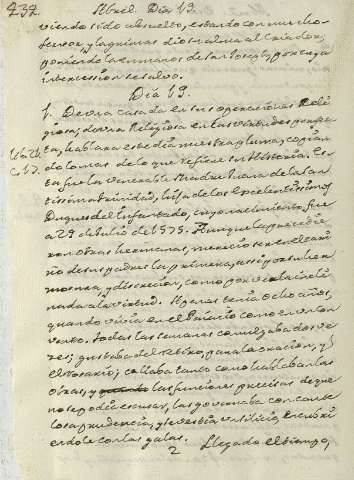 232. Abril Dia 19.
viendo sido absuelto, estando con mucho
fervor, y lagrimas dio su alma al Criador,
poniendo en manos de San Joseph, por cuya
intercession se salvò.
Dia 19.
1. De una casada en sus operaciones Reli
giosa, de una Religiosa en las virtudes perfec
ta, hablara este dia nuestra pluma, copian
do lo mas de lo que refiere su Historia. Es
ta fue la venerable Madre Juana de la San
tissima Trinidad, hija de los Excelentissimos
Duques del Infantado, cuyo nacimiento fue
a 29 de Julio de 1575. Aunque la precedie
ron otras hermanas, merecio ser en el cari
ño de sus padres la primera, assi por su her
mosura, y discrecion, como por verla incli
nada a la virtud. Apenas tenia ocho años,
quando vivia en el Palacio como en un Con
vento. Todas las semanas comulgaba dos ve
zes; gustaba del retiro, para la oracion, y
el Rosario; callaba tanto como hablaban las
obras, y las funciones precisas de que
no se podia escusar, las governaba con cautelo
sa prudencia, y se vestia un silicio, encubri
endole con las galas.
2 Llegado el tiempo,